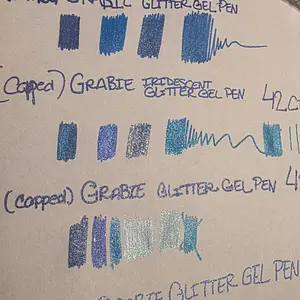 GRABIE GLITTER GEL PEN
(Capped) GRABIE IRIDESCENT GLITTER GEL PEN 42
(capped) GRABIE GLITTER GEL PEN 4
GLITTER GEL PEN